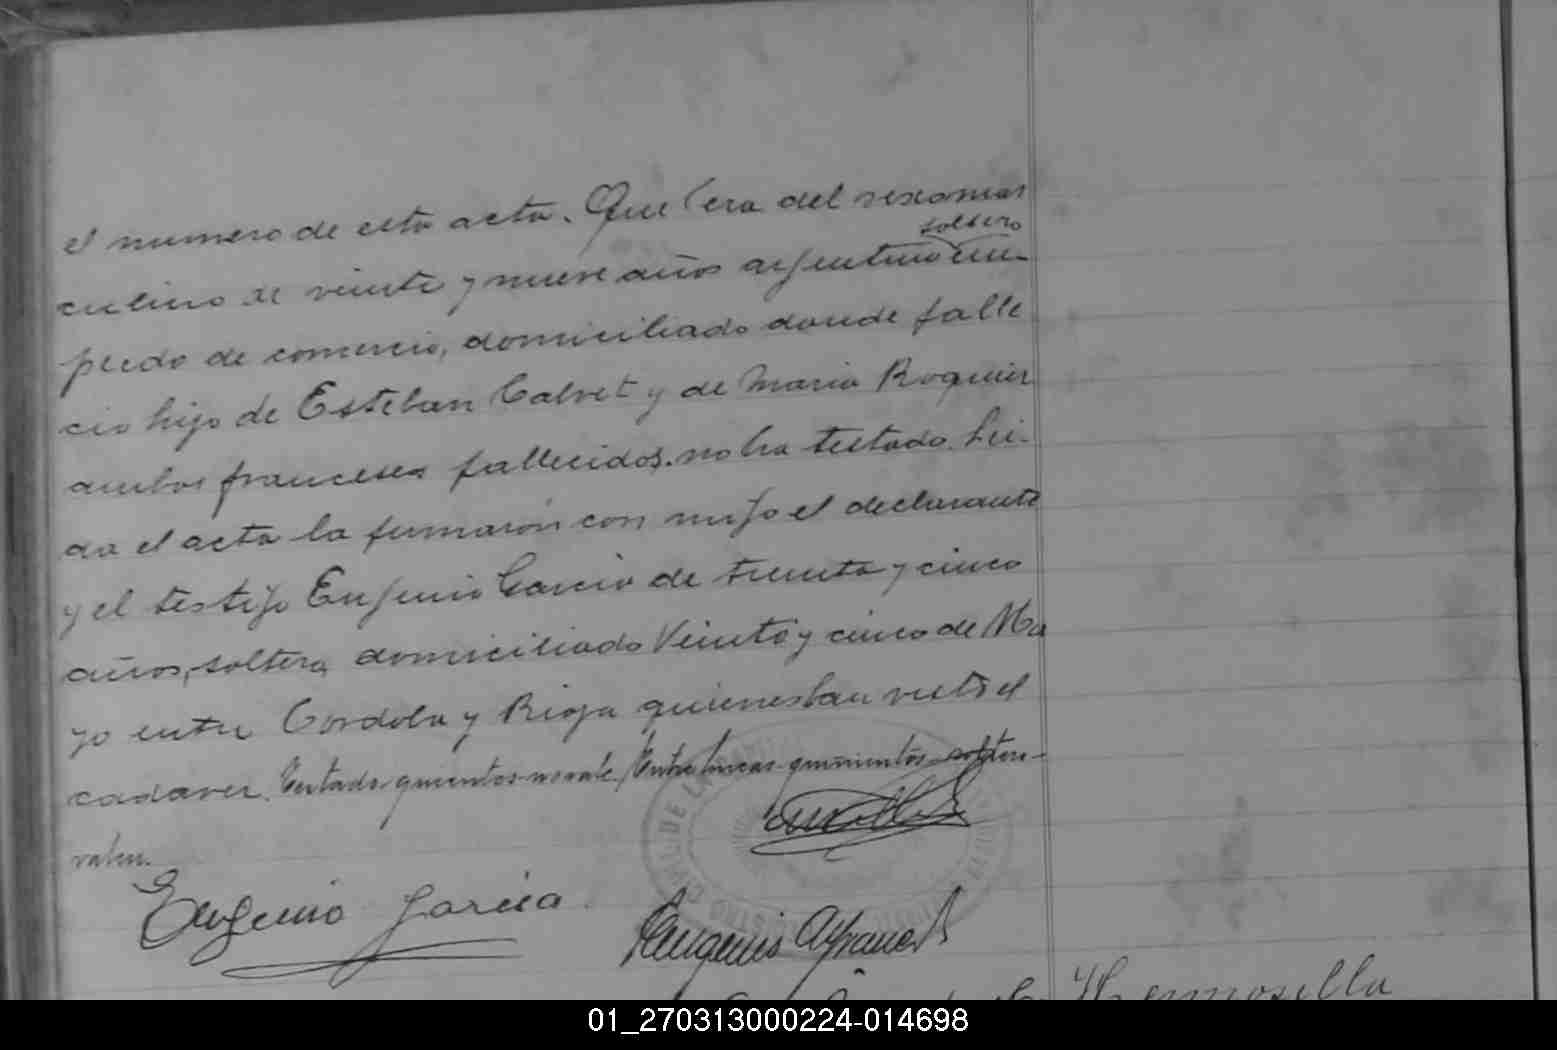 el numero de esta acta. Que era del sexo mas
soltero
culino de veinte y nueve años argentino em-
pledo de comercio, domiciliado donde falle
cio hijo de Esteban Calvet y de Maria Roquier
ambos franceses fallecidos. no ha testado. Lei-
da el acta la firmaron con migo el declarante
y el testigo Eugenio Garcia de treinta y cinco
años, soltero, domiciliado Veinte y cinco de Ma
yo entre Cordoba y Rioja quienes han visto el
cadaver. Testado quientos no vale / Entre lineas quinientos soltero-
valen.
Eugenio Garcia
Eugenio
Hermosilla
01_270313000224-014698